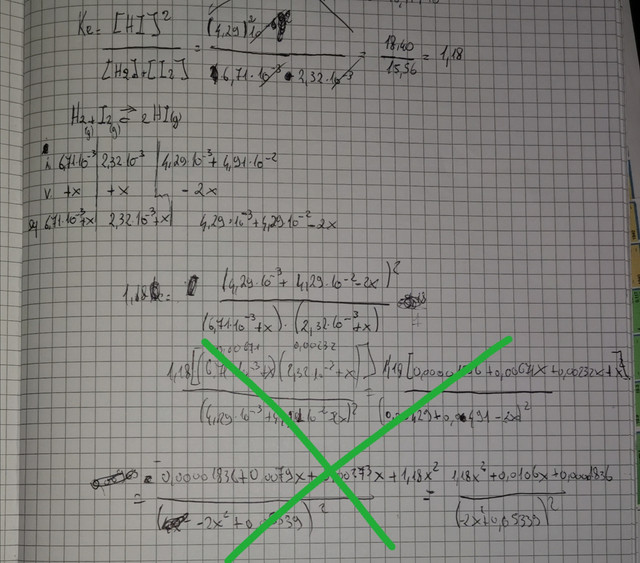 Kc= [HI]² / [H2]+[I2] = (4,29)² / 6,71·10⁻³ · 2,32·10⁻³ = 18,40 / 15,56 = 1,18
H2(g) + I2(g) ⇌ 2HI(g)
i. 6,71·10⁻³ | 2,32·10³ | 4,29·10⁻³ + 4,91·10⁻²
v. +x | +x | -2x
eq 6,71·10⁻³+x | 2,32·10⁻³+x | 4,29·10⁻³+4,29·10⁻²-2x
1,18 = (4,29·10⁻³ + 4,29·10⁻²-2x)² / (6,71·10⁻³+x)·(2,32·10⁻³+x)
0,00671 0,00232
1,18[(6,71·10⁻³+x)(2,32·10⁻³+x)] / (4,29·10⁻³+4,91·10⁻²-2x)² = 1,18[ +0,00671x+0,00232x+x²] / (0,00429+0,0491-2x)²
= 0,00001836+0,0079x+0,00273x+1,18x² / (-2x²+0,05339)² = 1,18x²+0,0106x+0,00001836 / (-2x²+0,05339)²